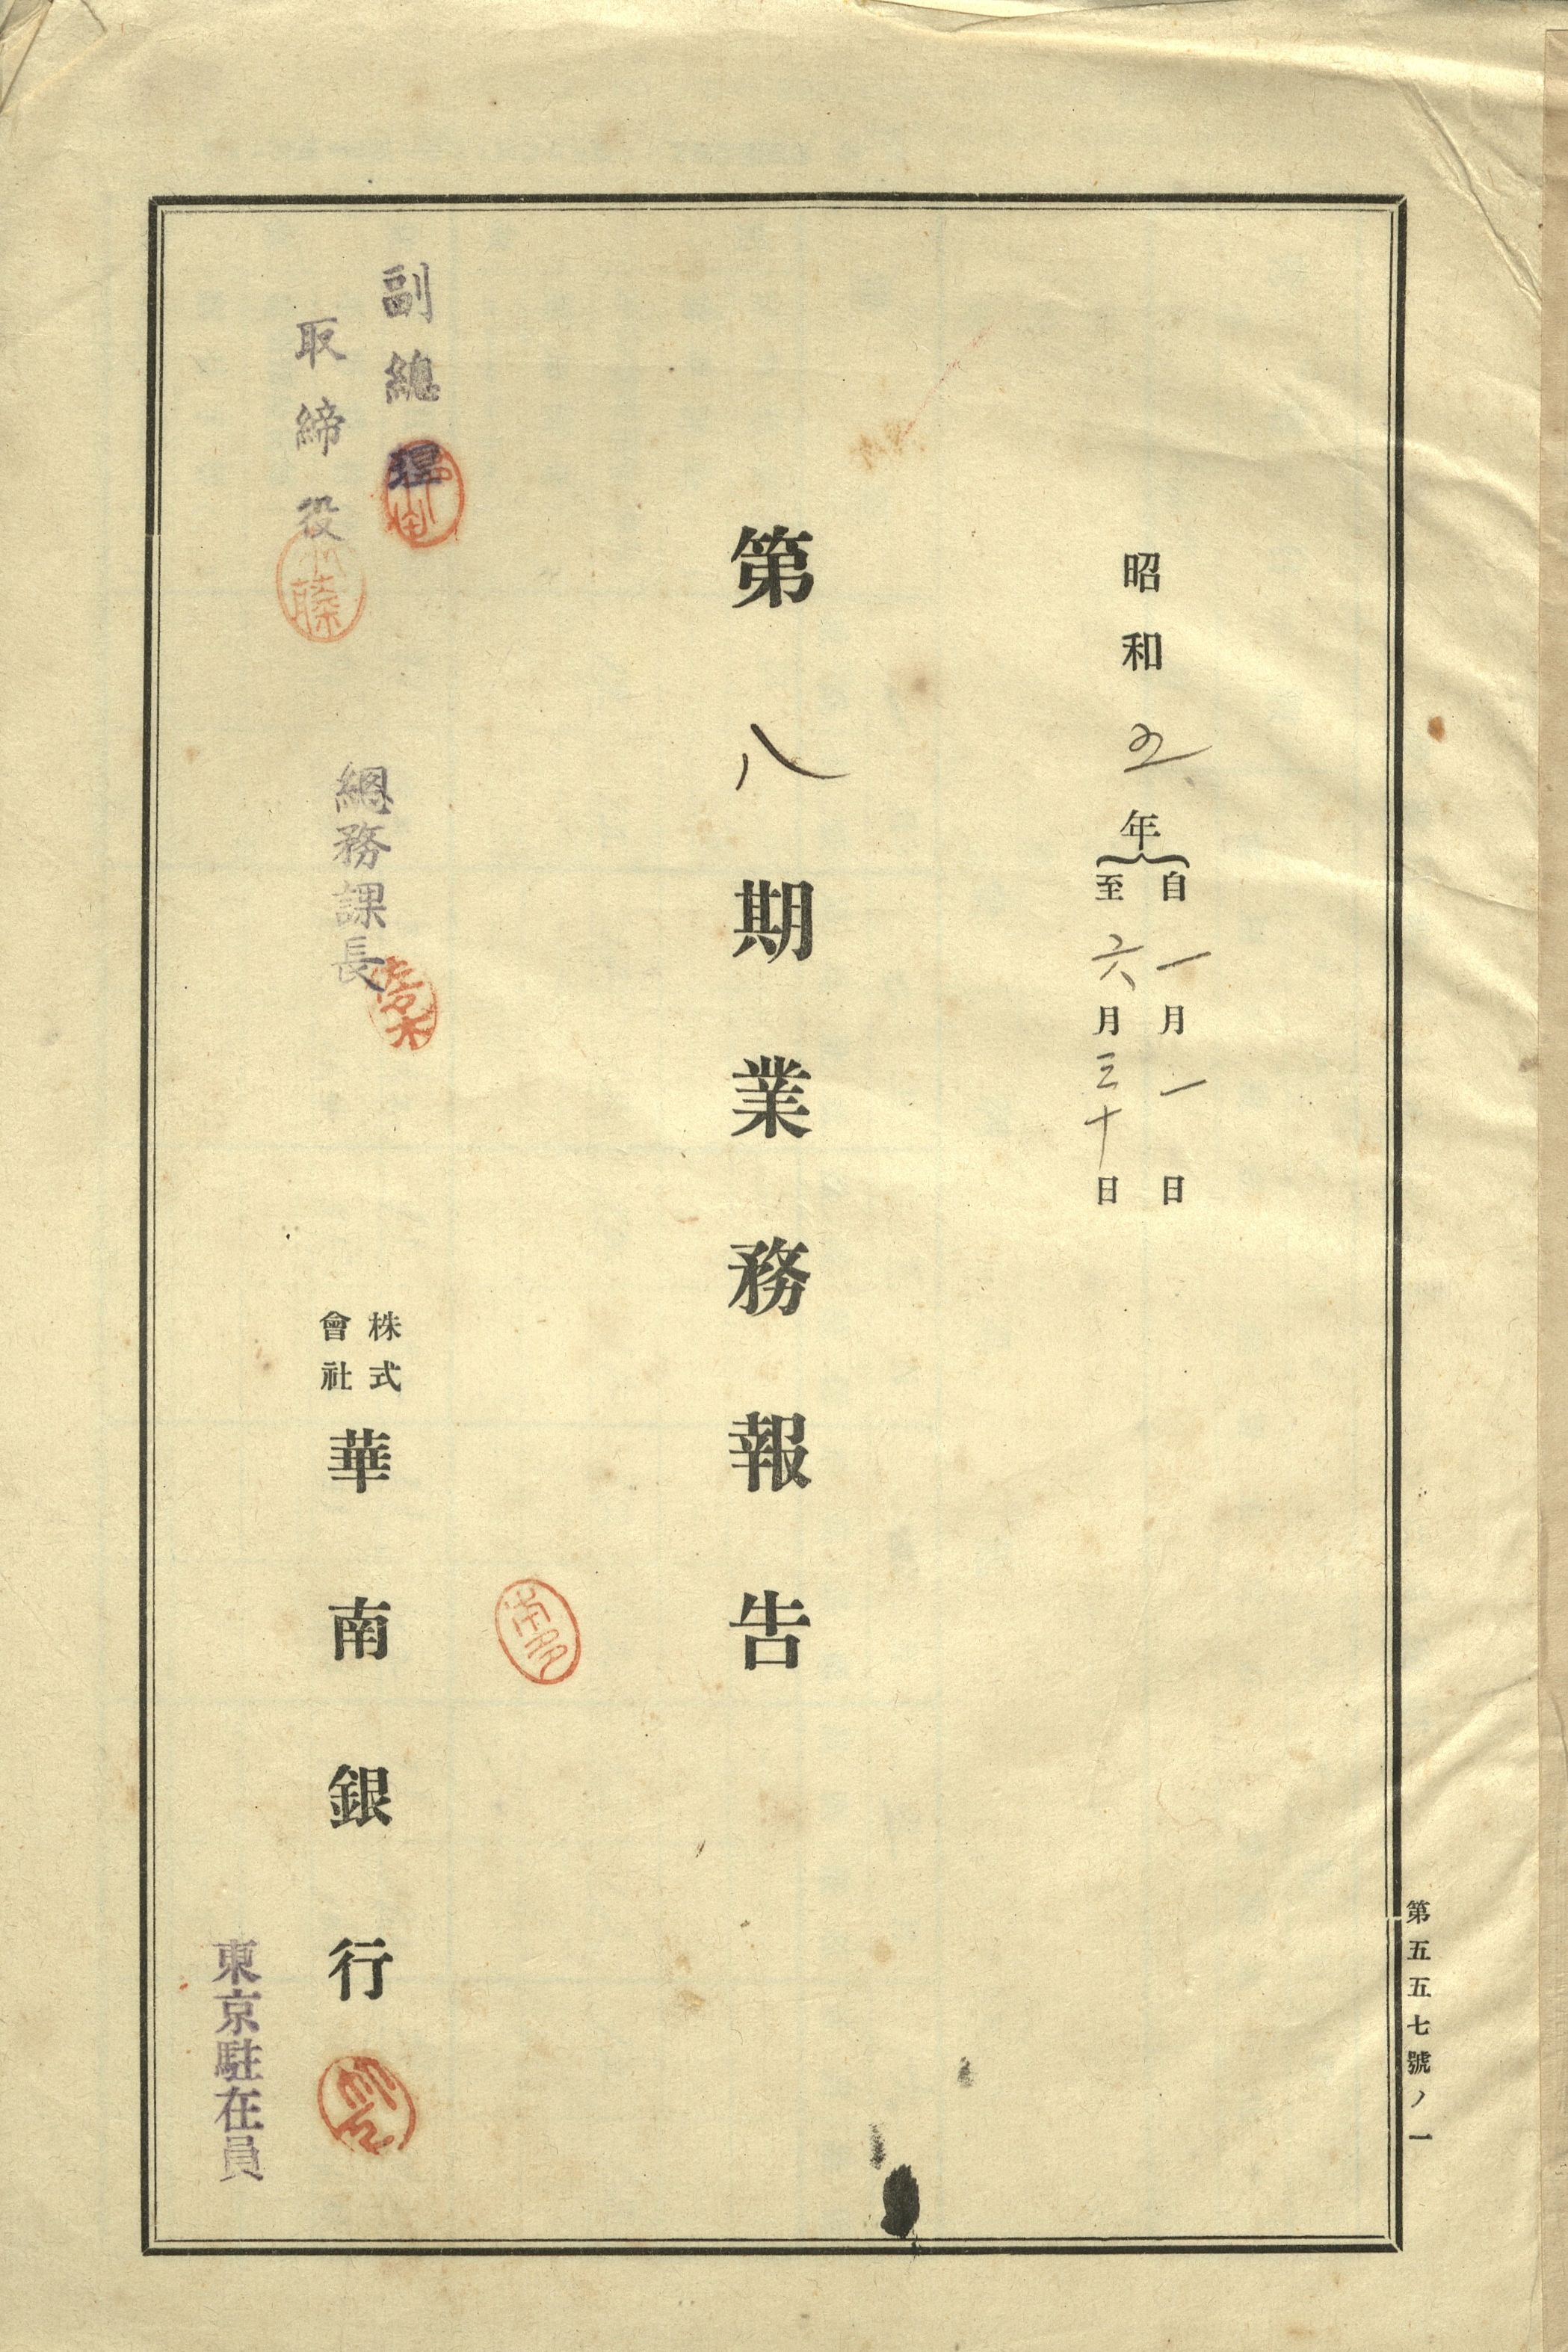 第五五七號ノ一
昭和五年
自一月一日
至六月三十日
第八期業務報告
副總理
取締役
總務課長
株式
會社
華南銀行
東京駐在員